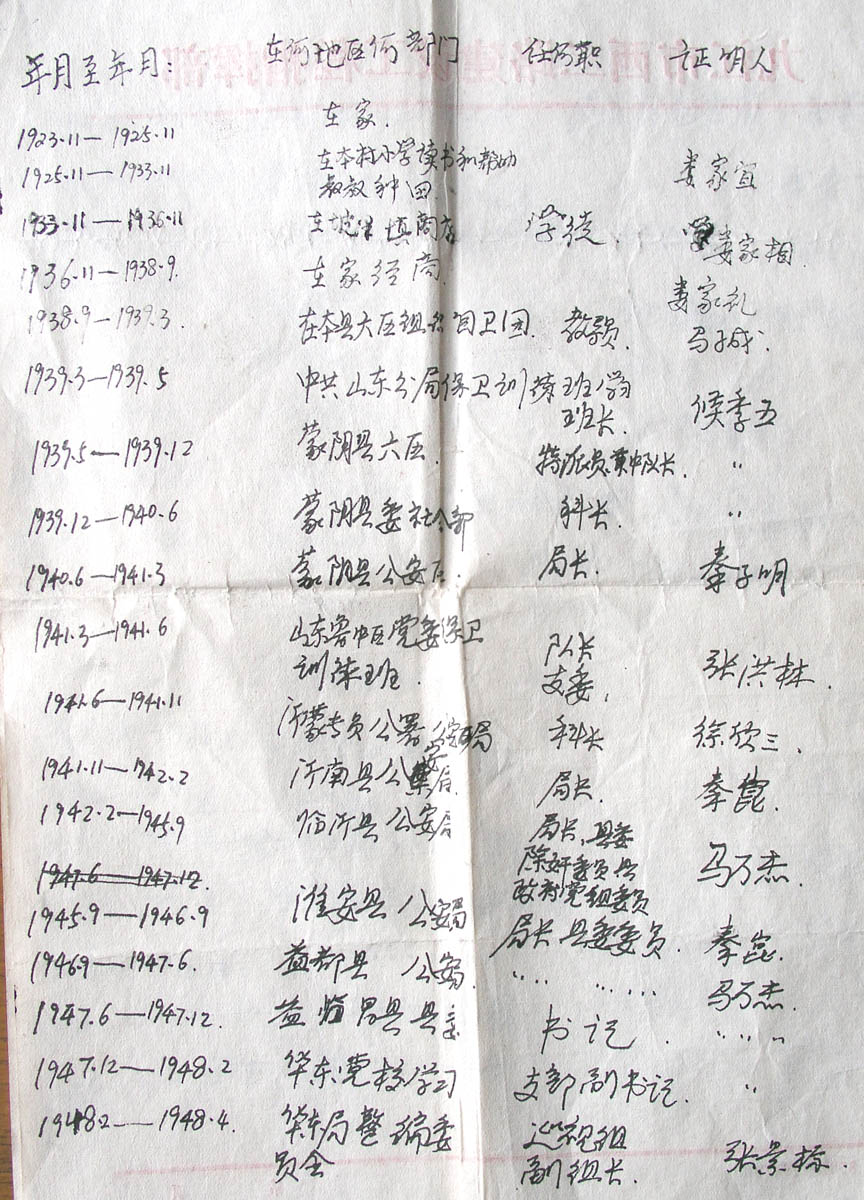 年月至年月: 在何地区何部门 任何职 证明人
1923.11— 1925.11 在家.
1925.11 — 1933.11 在本村小学读书和帮助
叔叔种田 娄家宜
1933.11 — 1936.11 在坡里镇商店 学徒. 娄家相.
1936.11—1938.9. 在家经商. 娄家礼
1938.9—1939.3. 在本县六区组织自卫团. 教员. 马子成.
1939.3—1939.5 中共山东分局保卫训练班学习
班长. 侯季五
1939.5—1939.12 蒙阴县六区. 特派员兼中队长. 〃
1939.12—1940.6 蒙阴县委社会部 科长. 〃
1940.6—1941.3 蒙阴县公安局. 局长. 秦子明
1941.3—1941.6 山东鲁中区党委保卫
训练班. 队长
支委. 张洪林.
1941.6—1941.11 沂蒙专员公署公安局 科长 徐欣三.
1941.11—1942.2 沂南县公安局. 局长. 秦昆.
1942.2—1945.9 临沂县公安局 局长.县委
除奸委员县
政府党组委员 马万杰.
1947.6—1947.12.
1945.9—1946.9 淮安县 公安局 局长县委委员. 秦崑.
1946.9—1947.6. 益都县 公安局. 〃 〃 马万杰.
1947.6—1947.12. 益临昌县县委 书记. 〃 〃
1947.12—1948.2 华东党校学习 支部副书记. 〃
1948.2—1948.4. 华东局整编委
员会 巡视组
副组长. 张景栋.